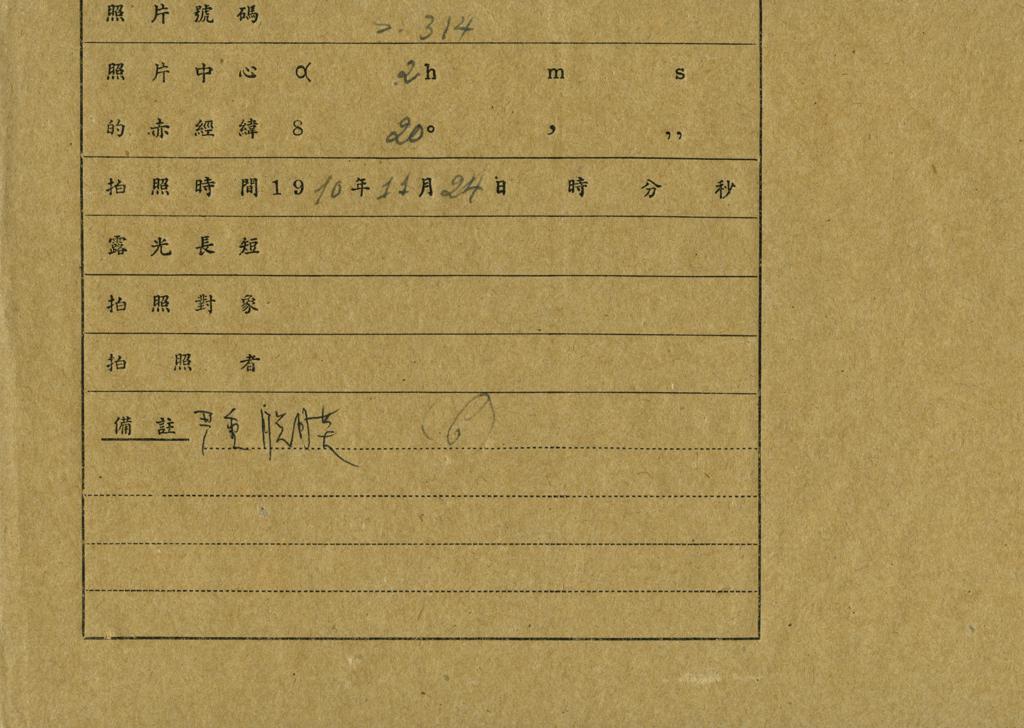 照片號碼 314
照片中心 α 2h m s
的赤經緯 δ 20° ′ ″
拍照時間1910年11月24日 時 分 秒
露光長短
拍照對象
拍照者
備註 嚴重脱膜 6